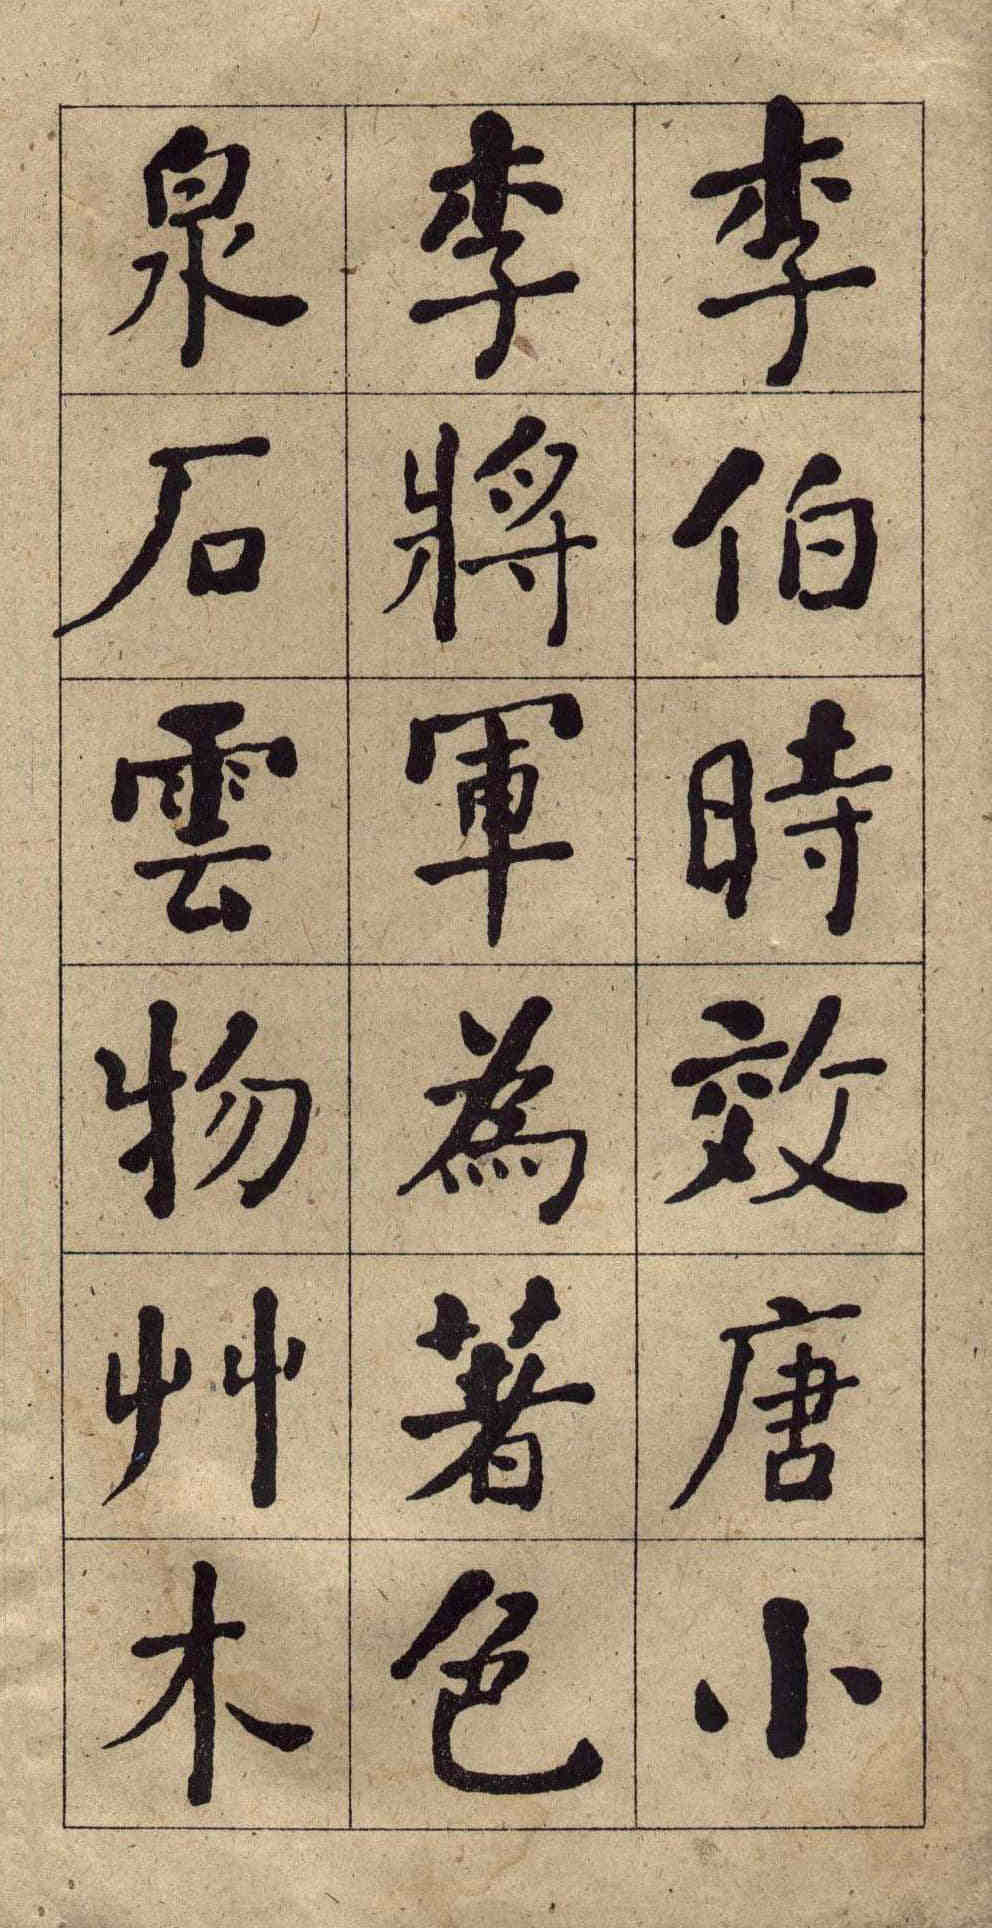 李伯時效唐小
李將軍為著色
泉石雲物艸木